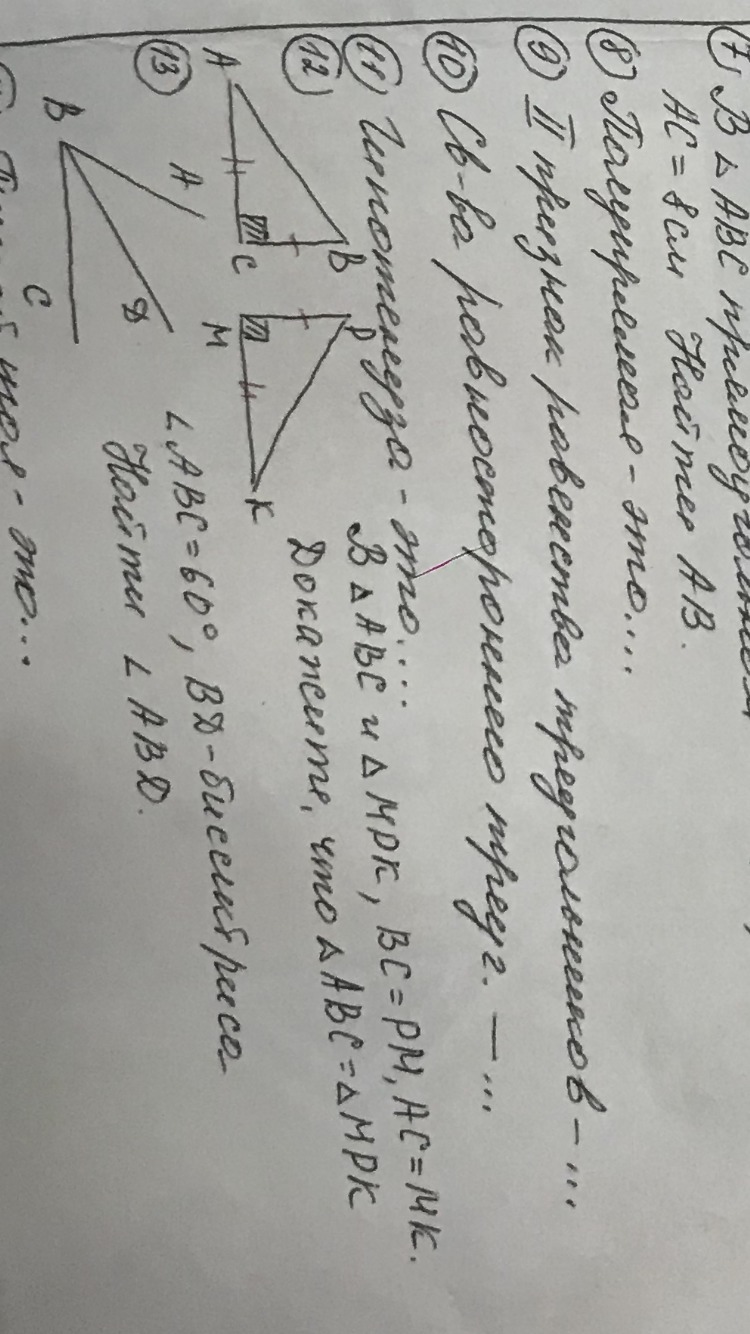 7) В △ ABC
AC = 8 см Найти AB.
8) Полупрямая - это....
9) II признак равенства треугольников - ...
10) Св-ва равностороннего треуг. - ...
11) Гипотенуза - это....
12) A C B M P K
В △ ABC и △ MPK, BC = PM, AC = MK.
Докажите, что △ ABC = △ MPK
13) B A D C
∠ ABC = 60°, BD - биссектриса
Найти ∠ ABD.
это...